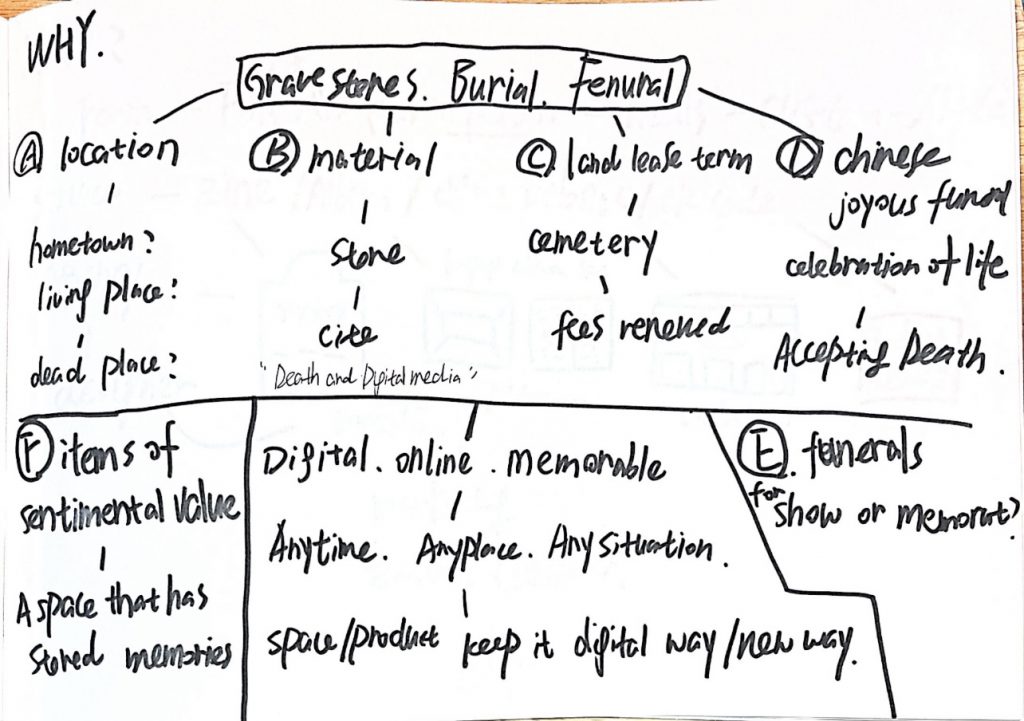 WHY.
Gravestones. Burial. Fenural
A location
hometown?
living place?
dead place?
B material
Stone
cite
"Death and Digital media"
C land lease term
cemetery
fees renewed
D chinese
joyous funeral
celebration of life
Accepting Death.
F items of
sentimental value
A space that has
stored memories
Digital. online. memorable
Anytime. Anyplace. Any situation.
space/product keep it digital way/new way.
E. funerals
for show or